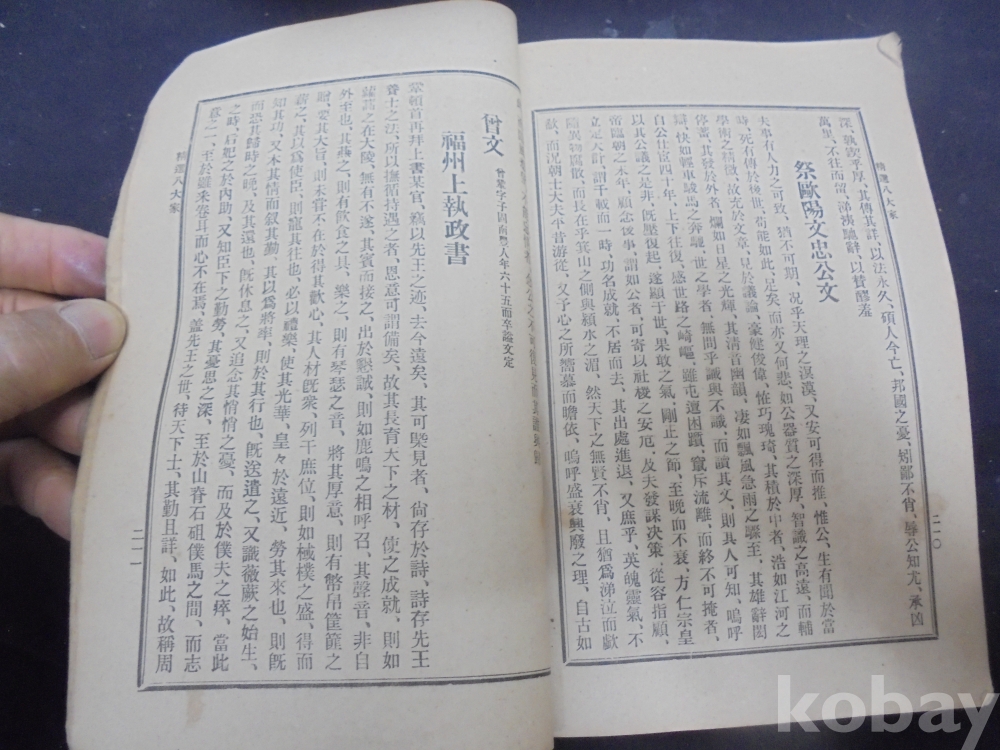 精選八大家
深、孰厚乎厚、其傳其詳、以法永久、碩人今亡、邦國之憂、矧鄙不肖、辱公知尤、承凶
萬里、不往而留、涕洟辭、以贊醪羞
祭歐陽文忠公文
夫事有人力之可致、猶不可期、况乎天理之溟漠、又安可得而推、惟公、生有聞於當
時、死有傳於後世、苟能如此、足矣、而亦又何悲、如公器質之深厚、智識之高遠、而輔
學術之精微、故充於文章、見於議論、豪健俊偉、怪巧瑰琦、其積於中者、浩如江河之
停蓄、其發於外者、爛如日星之光輝、其清音幽韻、凄如飄風急雨之驟至、其雄辭閎
辯、快如輕車駿馬之奔馳、世之學者、無問乎識與不識、而讀其文、則其人可知、嗚呼
自公仕宦四十年、上下往復、感世路之崎嶇、雖屯邅困躓、竄斥流離、而終不可掩者、
以其公議之是非、旣壓復起、遂顯于世、果敢之氣、剛正之節、至晩而不衰、方仁宗皇
帝臨朝之末年、顧念後事、謂如公者、可寄以社稷之安厄、及夫發謀决策、從容指顧、
立定大計、謂千載而一時、功名成就、不居而去、其出處進退、又庶乎、英魄靈氣、不
隨異物腐散、而長在乎箕山之側與潁水之湄、然天下之無賢不肖、且猶爲涕泣而歔
欷、而况朝士大夫平昔游從、又予心之所嚮慕而瞻依、嗚呼盛衰興廢之理、自古如
二一〇
曾文 曾鞏字子固南豐人年六十五而卒謚文定
福州上執政書
鞏頓首再拜上書某官、竊以先王之迹、去今遠矣、其可槩見者、尙存於詩、詩存先王
養士之法、所以撫循待遇之者、恩意可謂備矣、故其長育天下之材、使之成就、則如
蘿蒿之在大陵、無有不遂、其賓而接之、出於懇誠、則如鹿鳴之相呼召、其聲音、非自
外至也、其燕之、則有飮食之具、樂之、則有琴瑟之音、將其厚意、則有幣帛筐篚之
贈、要其大旨、則未嘗不在於得其歡心、其人材旣衆、列于庶位、則如棫樸之盛、得而
薪之、其以爲使臣、則寵其往也、必以禮樂、使其光華、皇々於遠近、勞其來也、則旣
知其功、又本其情而叙其勤、其以爲將率、則於其行也、旣送遣之、又識薇蕨之始生、
而恐其歸時之晩、及其還也、旣休息之、又追念其悄悄之憂、而及於僕夫之瘁、當此
之時、后妃之於內助、又知臣下之勤勞、其憂思之深、至於山脊石砠僕馬之間、而志
意之一、至於雖釆卷耳而心不在焉、盖先王之世、待天下士、其勤且詳、如此、故稱周
精選八大家
二一一
kobay